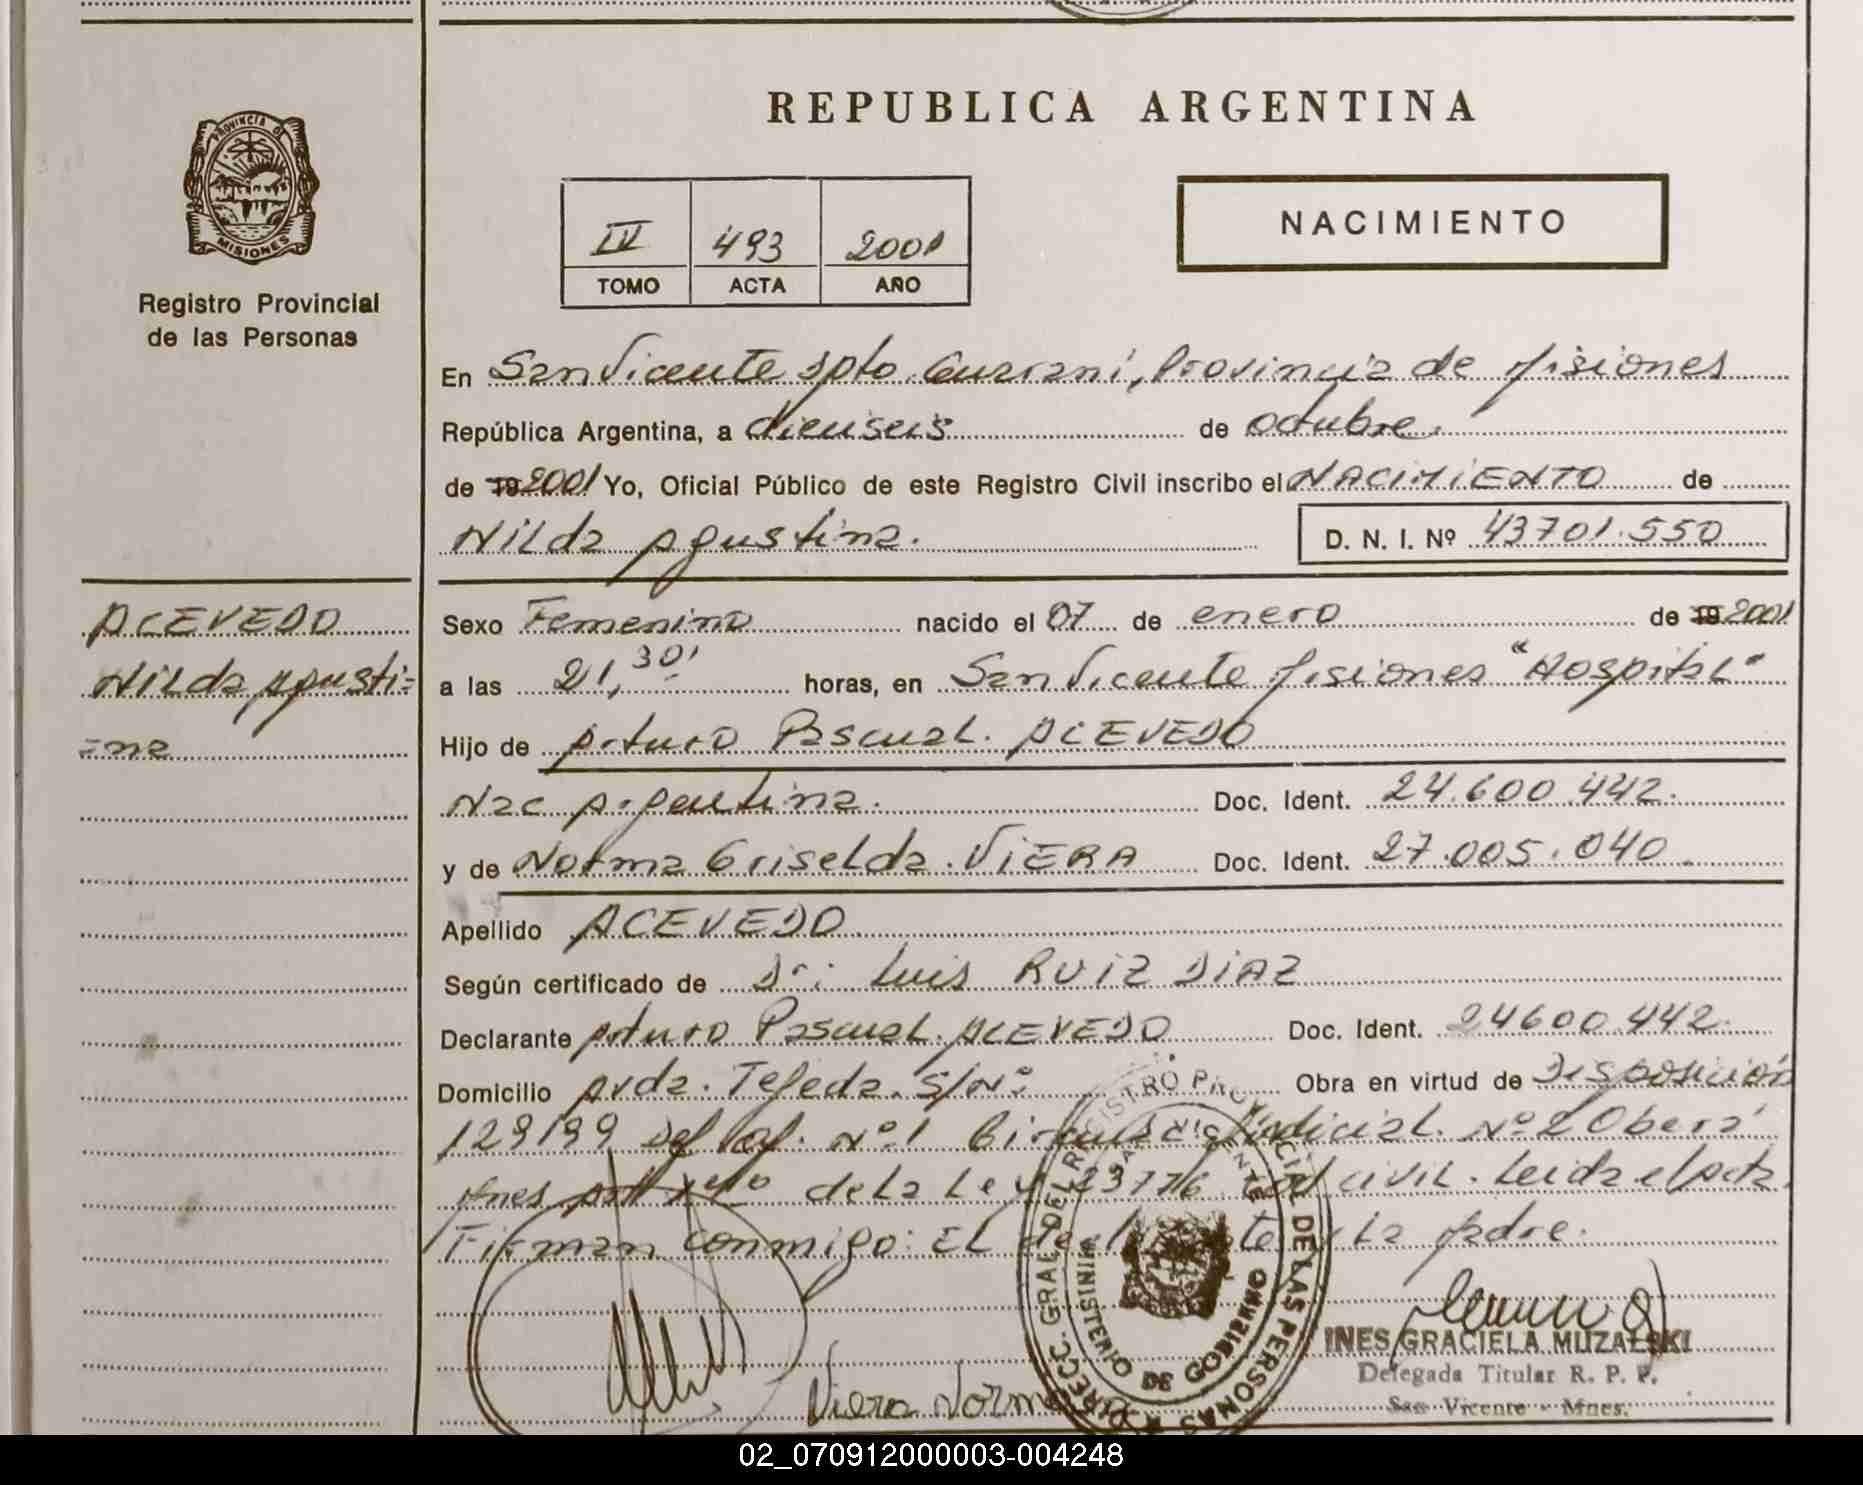 REPUBLICA ARGENTINA
PROVINCIA DE
MISIONES
Registro Provincial
de las Personas
IV 493 2001
TOMO ACTA AÑO
NACIMIENTO
En San Vicente Dpto. Guaraní, Provincia de Misiones
República Argentina, a dieciseis de octubre.
de 19 2001 Yo, Oficial Público de este Registro Civil inscribo el NACIMIENTO de
Nilda Agustina.
D. N. I. Nº 43701.550
ACEVEDO
Nilda Agusti=
=na
Sexo Femenino nacido el 07 de enero de 19 2001
a las 21,30' horas, en San Vicente Misiones "Hospital"
Hijo de Arturo Pascual. ACEVEDO
Nac Argentina. Doc. Ident. 24.600.442.
y de Norma Griselda. VIERA Doc. Ident. 27.005.040.
Apellido ACEVEDO
Según certificado de Dr: Luis RUIZ DIAZ
Declarante Arturo Pascual. ACEVEDO Doc. Ident. 24600.442.
Domicilio Avda. Tejeda. S/Nº Obra en virtud de Disposición
129/99 Def of. Nº1 Judicial. Nº2 Oberá
Mnes de la Ley 23776 civil. Leida el acta.
Firman conmigo: El la Madre.
Viera Norma
DIRECC. GRAL. DEL REGISTRO PROVINCIAL DE LAS PERSONAS
MINISTERIO DE GOBIERNO
SAN VICENTE
INES GRACIELA MUZALSKI
Delegada Titular R. P. P.
San Vicente - Mnes.
02_070912000003-004248